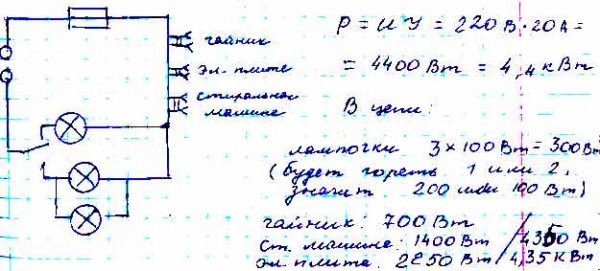 чайник
эл. плита
стиральная
машина
P = UI = 220 В · 20 А =
= 4400 Вт = 4,4 кВт
В цепи:
лампочки 3 × 100 Вт = 300 Вт
(будет гореть 1 или 2,
значит 200 или 100 Вт)
чайник: 700 Вт
ст. машина: 1400 Вт / 4350 Вт
эл. плита: 2250 Вт / 4,35 кВт